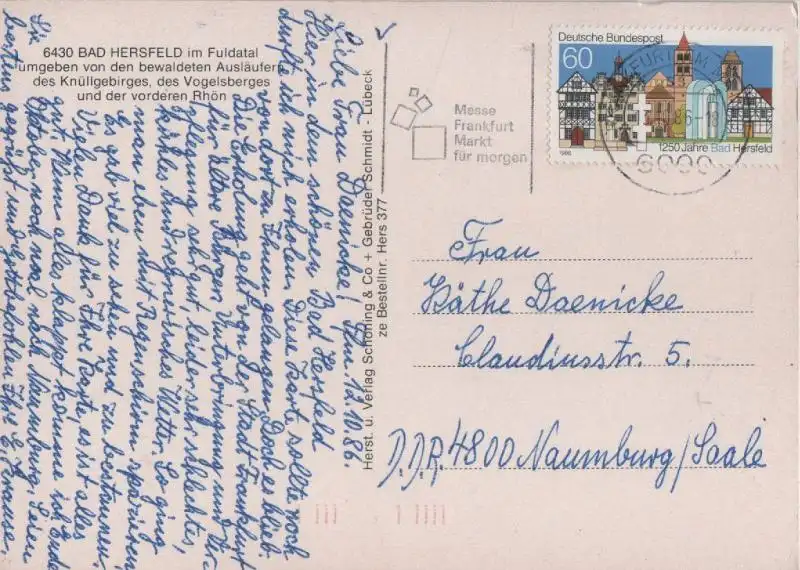 6430 BAD HERSFELD im Fuldatal
umgeben von den bewaldeten Ausläufern
des Knüllgebirges, des Vogelsberges
und der vorderen Rhön
Liebe Frau Daenicke! Ffm. 12.10.86.
Hier in dem schönen Bad Hersfeld
durfte ich mich erholen. Diese Karte sollte noch
von dort zu Ihnen gelangen. Doch es blieb
Die Erholung geht von der Stadt Frankfurt
für ältere Bürger. Unterbringung und Ver-
pflegung sehr gut, leider sehr schlechtes,
kaltes und regnerisches Wetter. So ging
man eben mit Regenschirm spazieren.
Es gab viel zu sehen und zu bestaunen.
Vielen Dank für Ihre Karte, es ist alles
gut. Wenn alles klappt komme ich Ende
Oktober noch mal nach Naumburg. Seien
Sie
bestens gegrüßt und Gott befohlen Ihre E. Krause.
Herst. u. Verlag Schöning & Co + Gebrüder Schmidt · Lübeck
ze Bestellnr. Hers 377
Messe
Frankfurt
Markt
für morgen
Deutsche Bundespost
60
1250 Jahre Bad Hersfeld
1986
FURT AM
86-18
6000
Frau
Käthe Daenicke
Claudiusstr. 5.
D.D.R. 4800 Naumburg/Saale